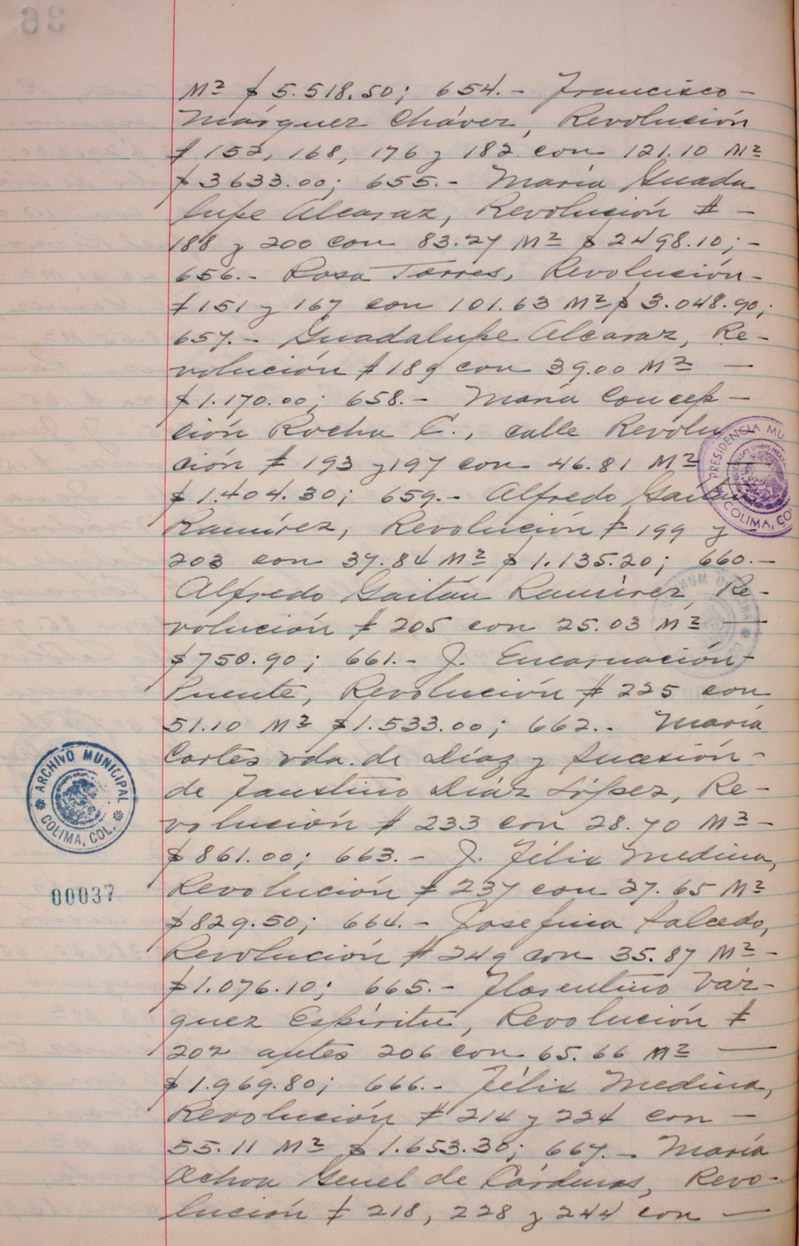 M² $ 5.518.50; 654.- Francisco -
Márquez Chávez, Revolución
# 152, 168, 176 y 182 con 121.10 M²
$ 3633.00; 655.- María Guada
lupe Alcaraz, Revolución # -
188 y 200 con 83.27 M² $ 2498.10; -
656.- Rosa Torres, Revolución -
# 151 y 167 con 101.63 M² $ 3.048.90;
657.- Guadalupe Alcaraz, Re-
volución # 189 con 39.00 M² —
$ 1.170.00; 658.- María Concep-
ción Rocha C., calle Revolu-
ción # 193 y 197 con 46.81 M² —
$ 1.404.30; 659.- Alfredo Gaitán
Ramírez, Revolución # 199 y
203 con 37.84 M² $ 1.135.20; 660.-
Alfredo Gaitán Ramírez, Re-
volución # 205 con 25.03 M² —
$ 750.90; 661.- J. Encarnación -
Puente, Revolución # 225 con
51.10 M² $ 1.533.00; 662.- María
Cortés vda. de Díaz y sucesión -
de Faustino Díaz López, Re-
volución # 233 con 28.70 M² -
$ 861.00; 663.- J. Félix Medina,
Revolución # 237 con 27.65 M²
$ 829.50; 664.- Josefina Salcedo,
Revolución # 249 con 35.87 M² -
$ 1.076.10; 665.- Florentino Váz-
quez Espíritu, Revolución #
202 antes 206 con 65.66 M² —
$ 1.969.80; 666.- Félix Medina,
Revolución # 214 y 224 con -
55.11 M² $ 1.653.30; 667.- María
Ochoa Genel de Cárdenas, Revo-
lución # 218, 228 y 244 con —
PRESIDENCIA MU
COLIMA, CO
ARCHIVO MUNICIPAL
COLIMA, COL.
00037
36